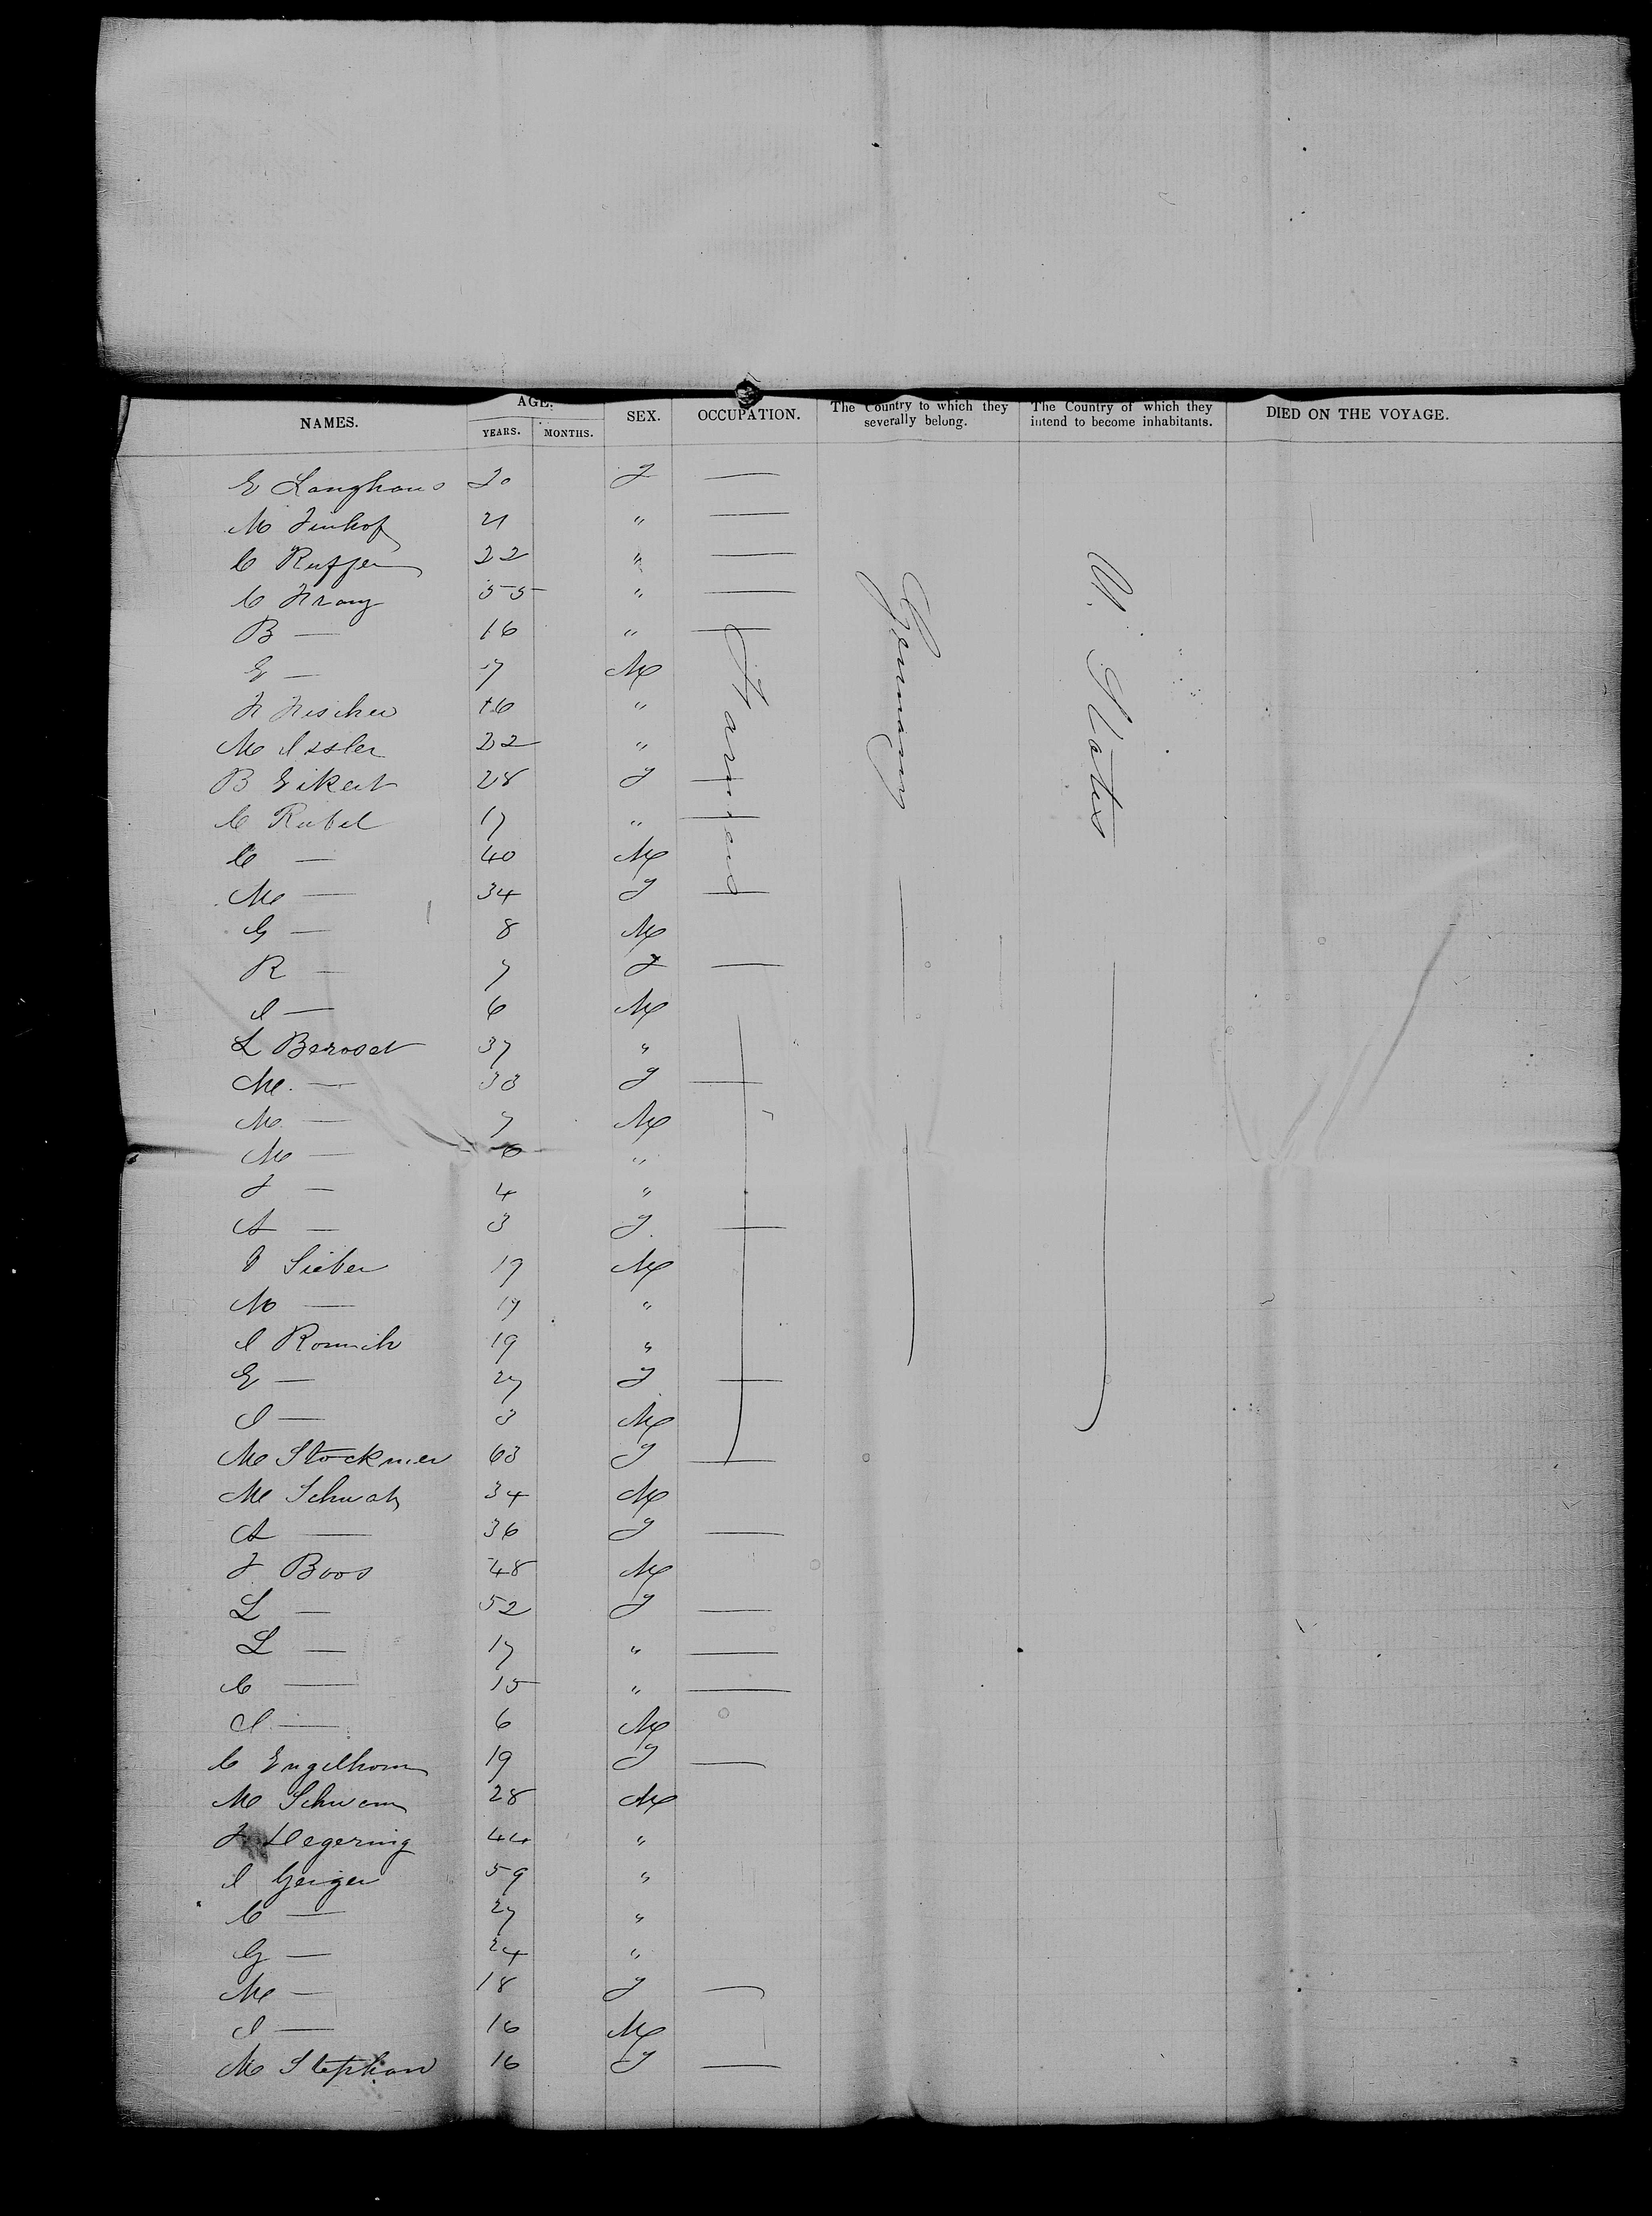 NAMES. AGE. YEARS. MONTHS. SEX. OCCUPATION. The Country to which they severally belong. The Country of which they intend to become inhabitants. DIED ON THE VOYAGE.
E Langhans 20 F —
M Imhof 21 " —
C 22 " —
C Franz 55 " —
B — 16 " —
E — 7 M
F Fischer 16 "
M Issler 22 "
B Eikert 28 F —
C Rubel 17 " —
C — 40 M
M — 34 F —
G — 8 M
R — 7 F —
I — 6 M
L Beroset 37 "
M — 33 F —
M — 7 M
M — 6 "
F — 4 "
A — 3 F —
I Sieber 19 M
M — 19 "
I Romich 19 "
E — 27 F —
I — 3 M
M Stockmer 63 F —
M Schwab 34 M
A — 36 F —
F Boos 48 M
L — 52 F —
L — 17 " —
C — 15 " —
I — 6 M
C Engelhorn 19 F —
M Schwem 28 M
F Degering 44 "
I Geiger 59 "
C — 27 "
G — 24 "
M — 18 F —
I — 16 M
M Stephan 16 F —
Farmers
Germany
U. States